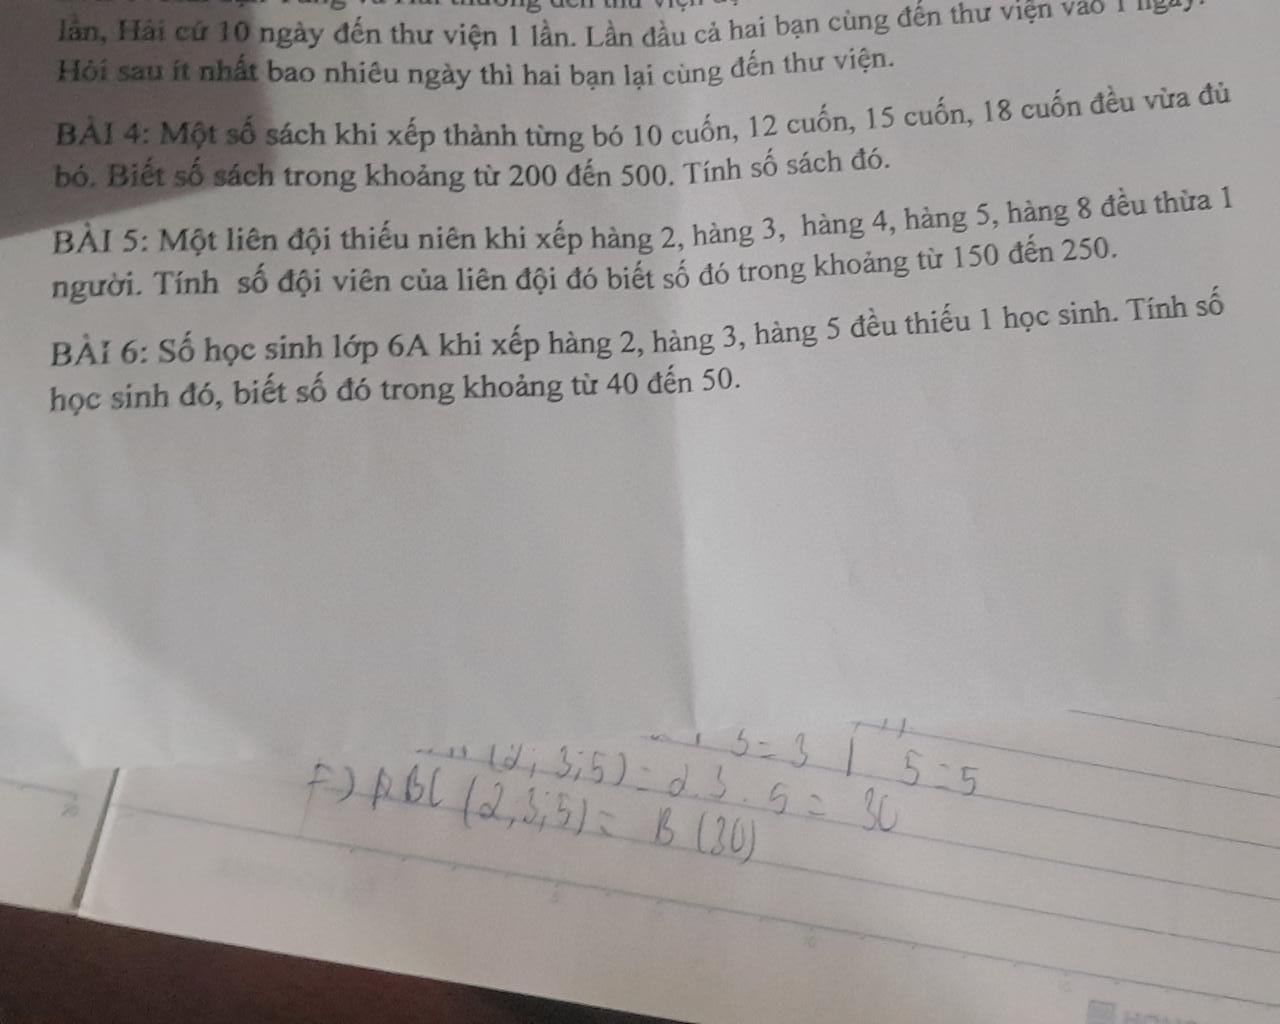 lần, Hải cứ 10 ngày đến thư viện 1 lần. Lần đầu cả hai bạn cùng đến thư viện vào 1 ngày.
Hỏi sau ít nhất bao nhiêu ngày thì hai bạn lại cùng đến thư viện.
BÀI 4: Một số sách khi xếp thành từng bó 10 cuốn, 12 cuốn, 15 cuốn, 18 cuốn đều vừa đủ
bó. Biết số sách trong khoảng từ 200 đến 500. Tính số sách đó.
BÀI 5: Một liên đội thiếu niên khi xếp hàng 2, hàng 3, hàng 4, hàng 5, hàng 8 đều thừa 1
người. Tính số đội viên của liên đội đó biết số đó trong khoảng từ 150 đến 250.
BÀI 6: Số học sinh lớp 6A khi xếp hàng 2, hàng 3, hàng 5 đều thiếu 1 học sinh. Tính số
học sinh đó, biết số đó trong khoảng từ 40 đến 50.
3 = 3 5 = 5
(2; 3; 5) = 2.3.5 = 30
BC (2; 3; 5) = B (30)